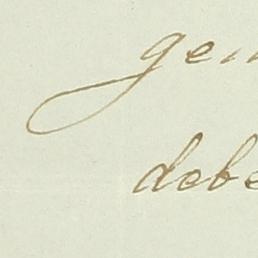 gen
debe